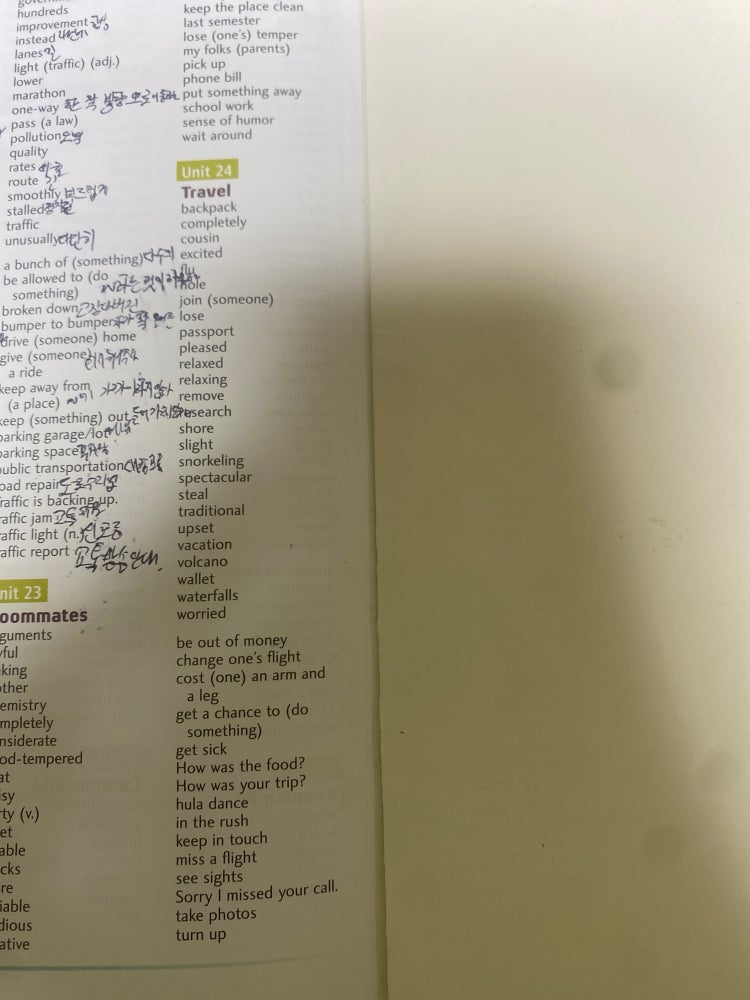 hundreds
improvement
instead
lanes 길
light (traffic) (adj.)
lower
marathon
one-way
pass (a law)
pollution 오염
quality
rates
route
smoothly 부드럽게
stalled
traffic
unusually
a bunch of (something) 다수의
be allowed to (do
something)
broken down
bumper to bumper
drive (someone) home
give (someone)
a ride
keep away from
(a place)
keep (something) out
parking garage/lot
parking space
public transportation
road repair
traffic is backing up.
traffic jam
traffic light (n.) 신호등
traffic report
Unit 23
roommates
guments
ful
king
other
emistry
mpletely
nsiderate
od-tempered
at
isy
ty (v.)
et
able
cks
re
iable
dious
ative
keep the place clean
last semester
lose (one's) temper
my folks (parents)
pick up
phone bill
put something away
school work
sense of humor
wait around
Unit 24
Travel
backpack
completely
cousin
excited
fly
hole
join (someone)
lose
passport
pleased
relaxed
relaxing
remove
research
shore
slight
snorkeling
spectacular
steal
traditional
upset
vacation
volcano
wallet
waterfalls
worried
be out of money
change one's flight
cost (one) an arm and
a leg
get a chance to (do
something)
get sick
How was the food?
How was your trip?
hula dance
in the rush
keep in touch
miss a flight
see sights
Sorry I missed your call.
take photos
turn up